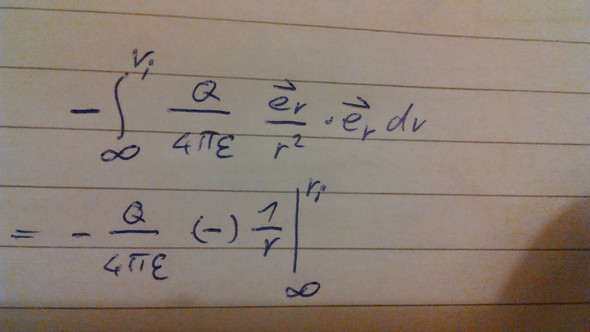 $-\int_{\infty}^{r_i} \frac{Q}{4\pi\varepsilon} \frac{\vec{e}_r}{r^2} \cdot \vec{e}_r \, dr$
$= -\frac{Q}{4\pi\varepsilon} (-) \frac{1}{r} \Big|_{\infty}^{r_i}$